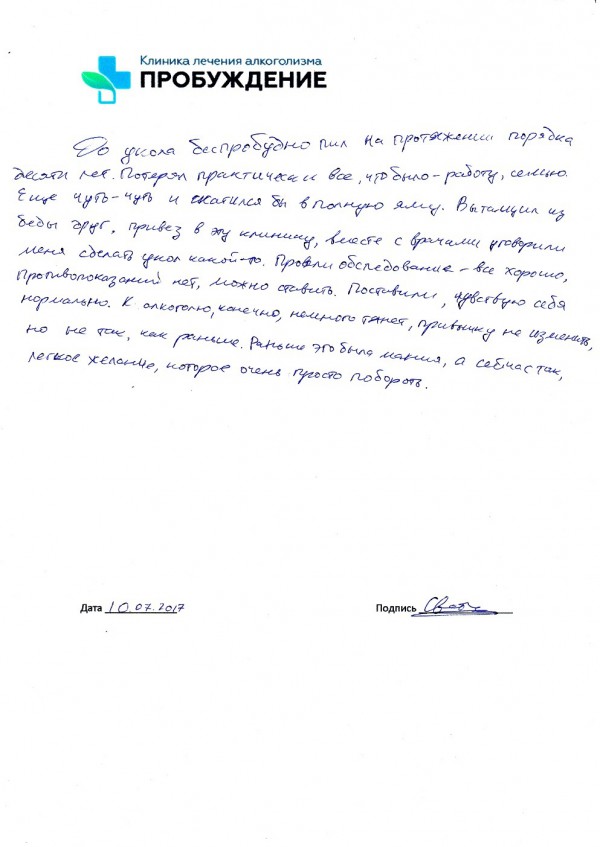 Клиника лечения алкоголизма
ПРОБУЖДЕНИЕ
До укола беспробудно пил на протяжении порядка
десяти лет. Потерял практически все, что было - работу, семью.
Еще чуть-чуть и скатился бы в полную яму. Вытащил из
беды друг, привез в эту клинику, вместе с врачами уговорили
меня сделать укол какой-то. Провели обследование - все хорошо,
Противопоказаний нет, можно ставить. Поставили, чувствую себя
нормально. К алкоголю, конечно, немного тянет, привычку не изменить,
но не так, как раньше. Раньше это была мания, а сейчас так,
легкое желание, которое очень просто побороть.
Дата 10.07.2017
Подпись